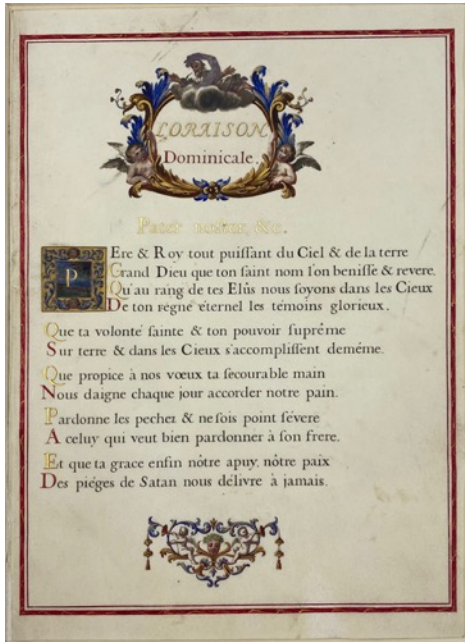 L'ORAISON
Dominicale.
Pater noster, &c.
PEre & Roy tout puiſſant du Ciel & de la terre
Grand Dieu que ton ſaint nom l'on beniſſe & revere.
Qu'au rang de tes Elûs nous ſoyons dans les Cieux
De ton regne éternel les témoins glorieux.
Que ta volonté ſainte & ton pouvoir ſuprême
Sur terre & dans les Cieux s'accompliſſent deméme.
Que propice à nos vœux ta ſecourable main
Nous daigne chaque jour accorder notre pain.
Pardonne les pechez & ne ſois point ſévere
A celuy qui veut bien pardonner à ſon frere.
Et que ta grace enfin nôtre apuy, nôtre paix
Des piéges de Satan nous délivre à jamais.